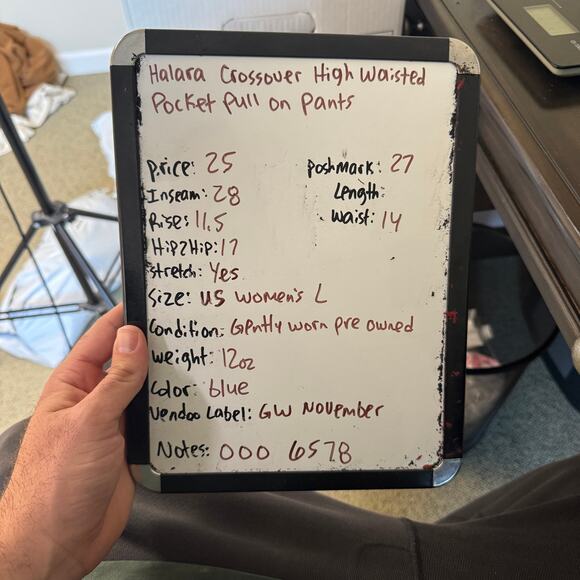 Halara Crossover High Waisted
Pocket Pull on Pants
Price: 25
Poshmark: 27
Inseam: 28
Length:
Rise: 11.5
Waist: 14
Hip2Hip: 17
Stretch: Yes
Size: US Women's L
Condition: Gently worn pre owned
Weight: 12oz
Color: blue
Vendoo Label: GW November
Notes: 000 6578